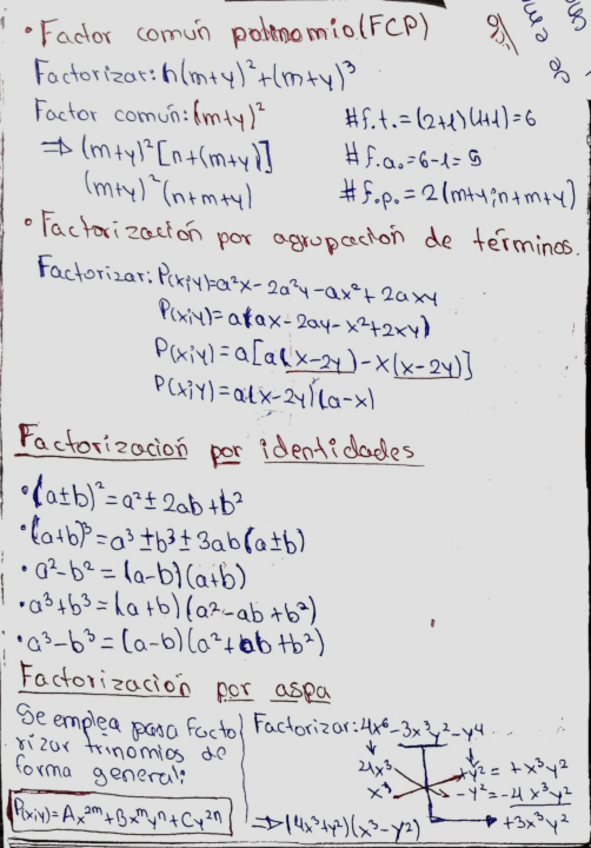 • Factor común polinomio (FCP)
Factorizar: h(m+y)²+(m+y)³
Factor común: (m+y)²
⇒ (m+y)²[n+(m+y)]
(m+y)²(n+m+y)
# f.t. = (2+1)(1+1)=6
# f.a. = 6-1 = 5
# f.p. = 2(m+y; n+m+y)
• Factorización por agrupación de términos.
Factorizar: P(x;y)=a²x - 2a²y - ax² + 2axy
P(x;y)= a(ax - 2ay - x² + 2xy)
P(x;y)= a[a(x-2y) - x(x-2y)]
P(x;y)= a(x-2y)(a-x)
Factorización por identidades
• (a±b)² = a² ± 2ab + b²
• (a±b)³ = a³ ± b³ ± 3ab(a±b)
• a²-b² = (a-b)(a+b)
• a³+b³ = (a+b)(a²-ab+b²)
• a³-b³ = (a-b)(a²+ab+b²)
Factorización por aspa
Se emplea para facto
rizar trinomios de
forma general:
P(x;y)= Ax²ᵐ+Bxᵐyⁿ+Cy²ⁿ
Factorizar: 4x⁶-3x³y²-y⁴
4x³ +y² = +x³y²
x³ -y² = -4x³y²
+3x³y²
⇒ (4x³+y²)(x³-y²)